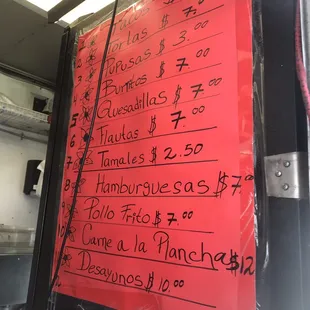 Tortas $ 7.
3 Pupusas $ 3.00
4 Burritos $ 7.00
5 Quesadillas $ 7.00
6 Flautas $ 7.00
7 Tamales $ 2.50
8 Hamburguesas $7.00
9 Pollo Frito $ 7.00
10 Carne a la Plancha $12
Desayunos $ 10.00